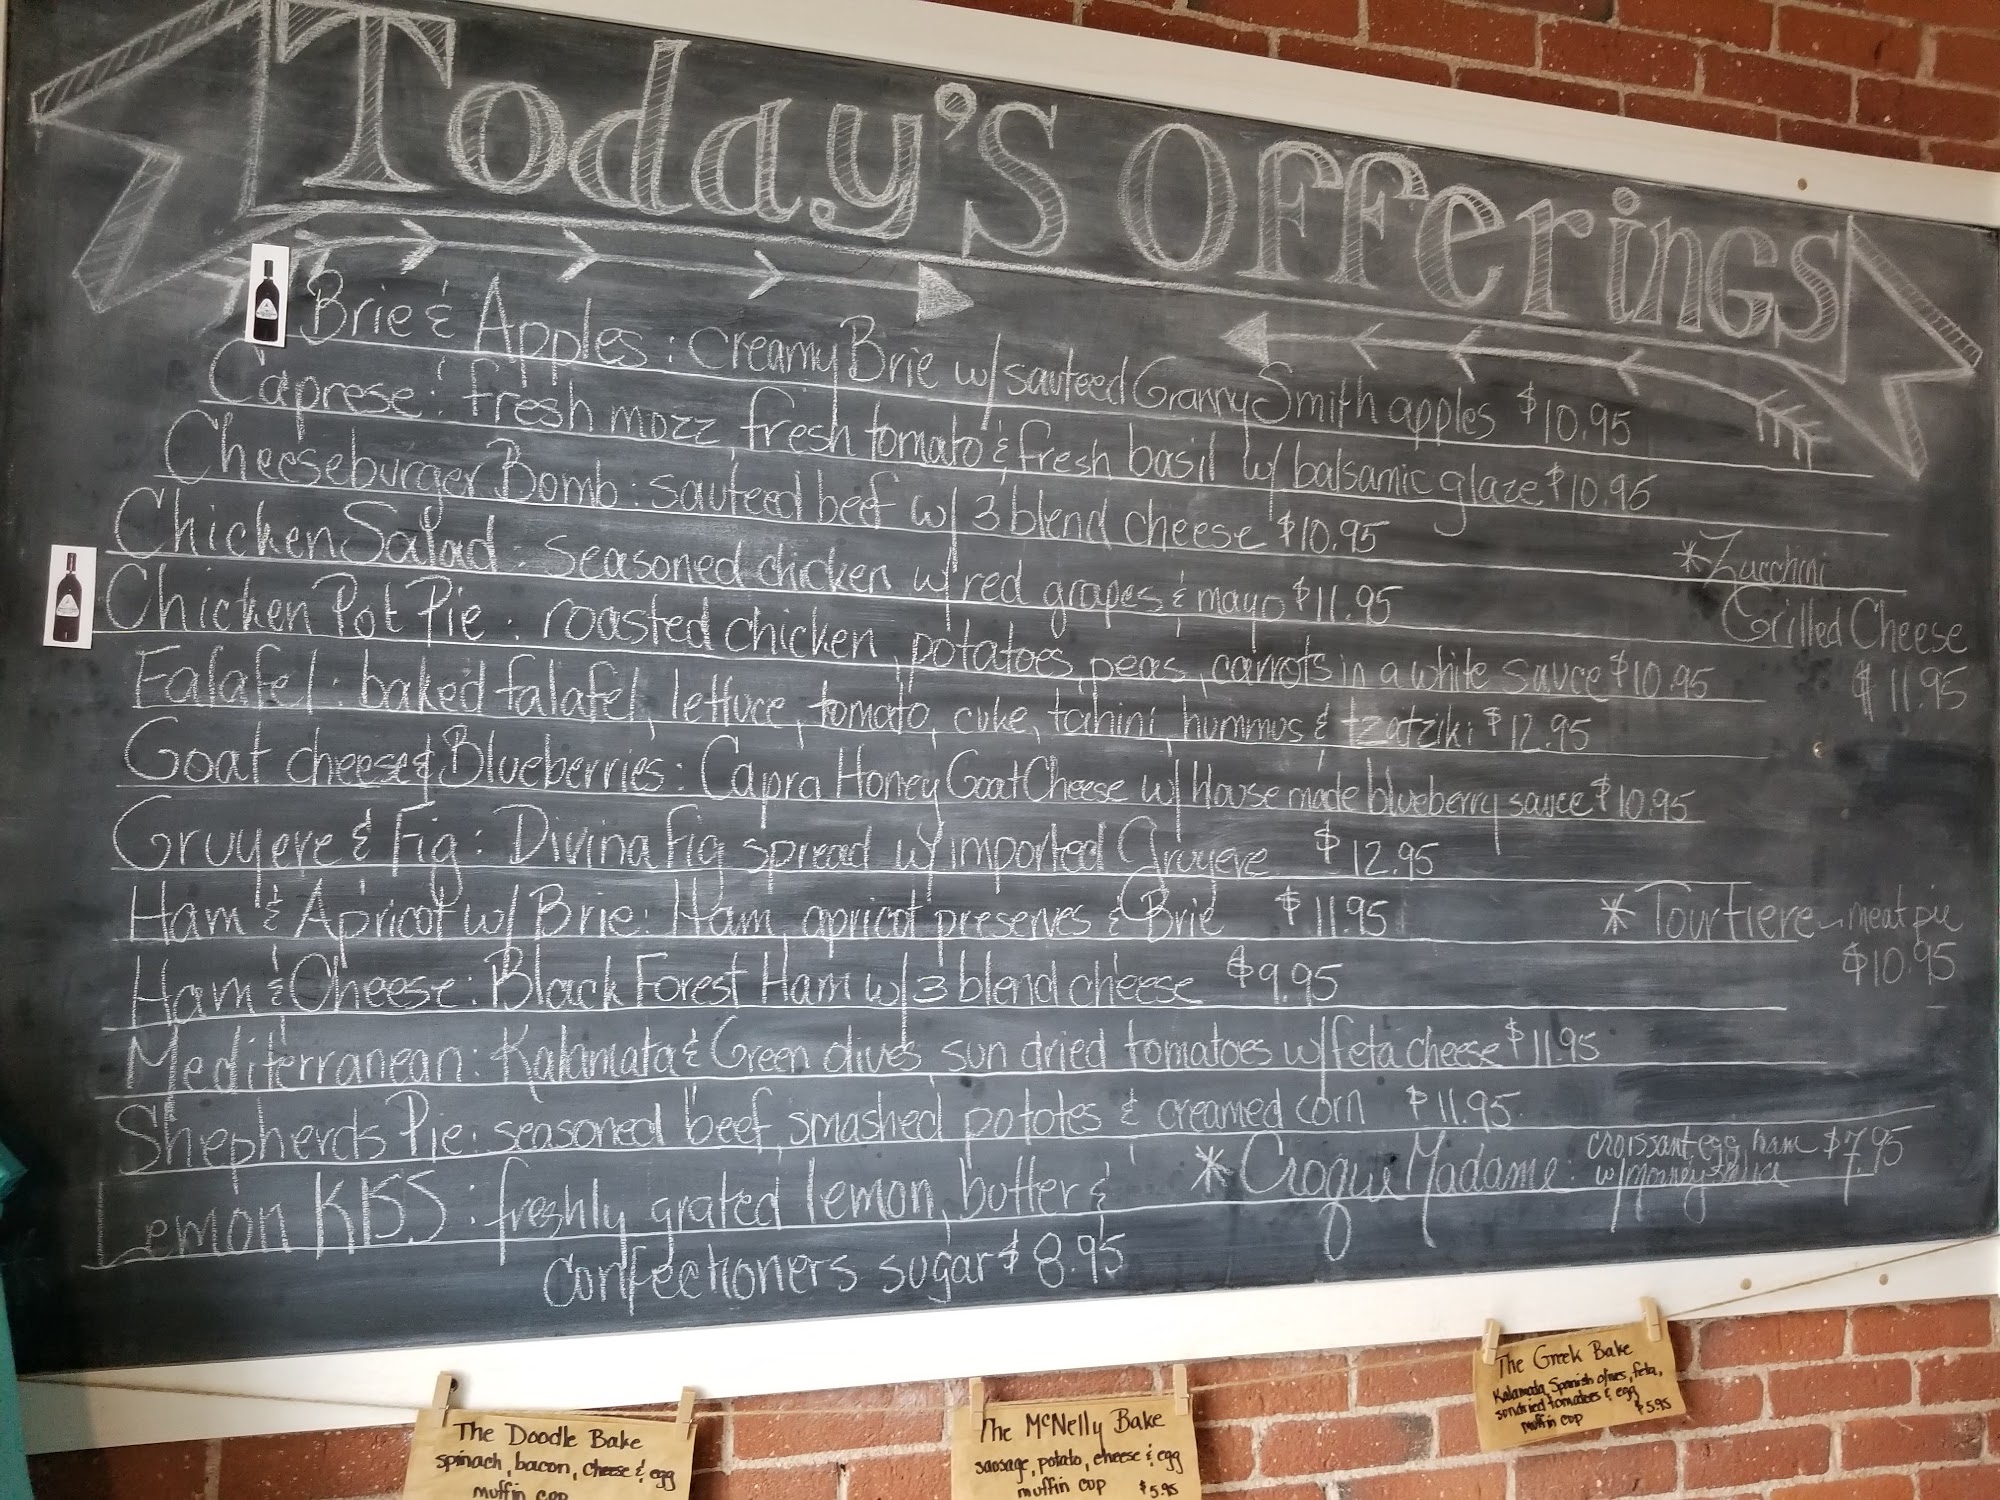 Today's Offerings
Brie & Apples: Creamy Brie w/ sauteed Granny Smith apples $10.95
Caprese: fresh mozz, fresh tomato & fresh basil w/ balsamic glaze $10.95
Cheeseburger Bomb: sauteed beef w/ 3 blend cheese $10.95
Chicken Salad: seasoned chicken w/ red grapes & mayo $11.95
*Zucchini
Grilled Cheese
$11.95
Chicken Pot Pie: roasted chicken, potatoes, peas, carrots in a white sauce $10.95
Falafel: baked falafel, lettuce, tomato, cuke, tahini, hummus & tzatziki $12.95
Goat cheese & Blueberries: Capra Honey Goat Cheese w/ House made blueberry sauce $10.95
Gruyere & Fig: Divina Fig spread w/ imported Gruyere $12.95
Ham & Apricot w/ Brie: Ham, apricot preserves & Brie $11.95
*Tourtiere - meat pie
$10.95
Ham & Cheese: Black Forest Ham w/ 3 blend cheese $9.95
Mediterranean: Kalamata & Green olives, sun dried tomatoes w/ feta cheese $11.95
Shepherds Pie: seasoned beef, smashed pototes & creamed corn $11.95
*Croque Madame: croissant, egg, ham $7.95
w/ Mornay sauce
Lemon KISS: freshly grated lemon, butter &
confectioners sugar $8.95
The Doodle Bake
spinach, bacon, cheese & egg
muffin cup
The McNelly Bake
sausage, potato, cheese & egg
muffin cup $5.95
The Greek Bake
Kalamata, Spanish olives, feta,
sundried tomatoes & egg
muffin cup $5.95